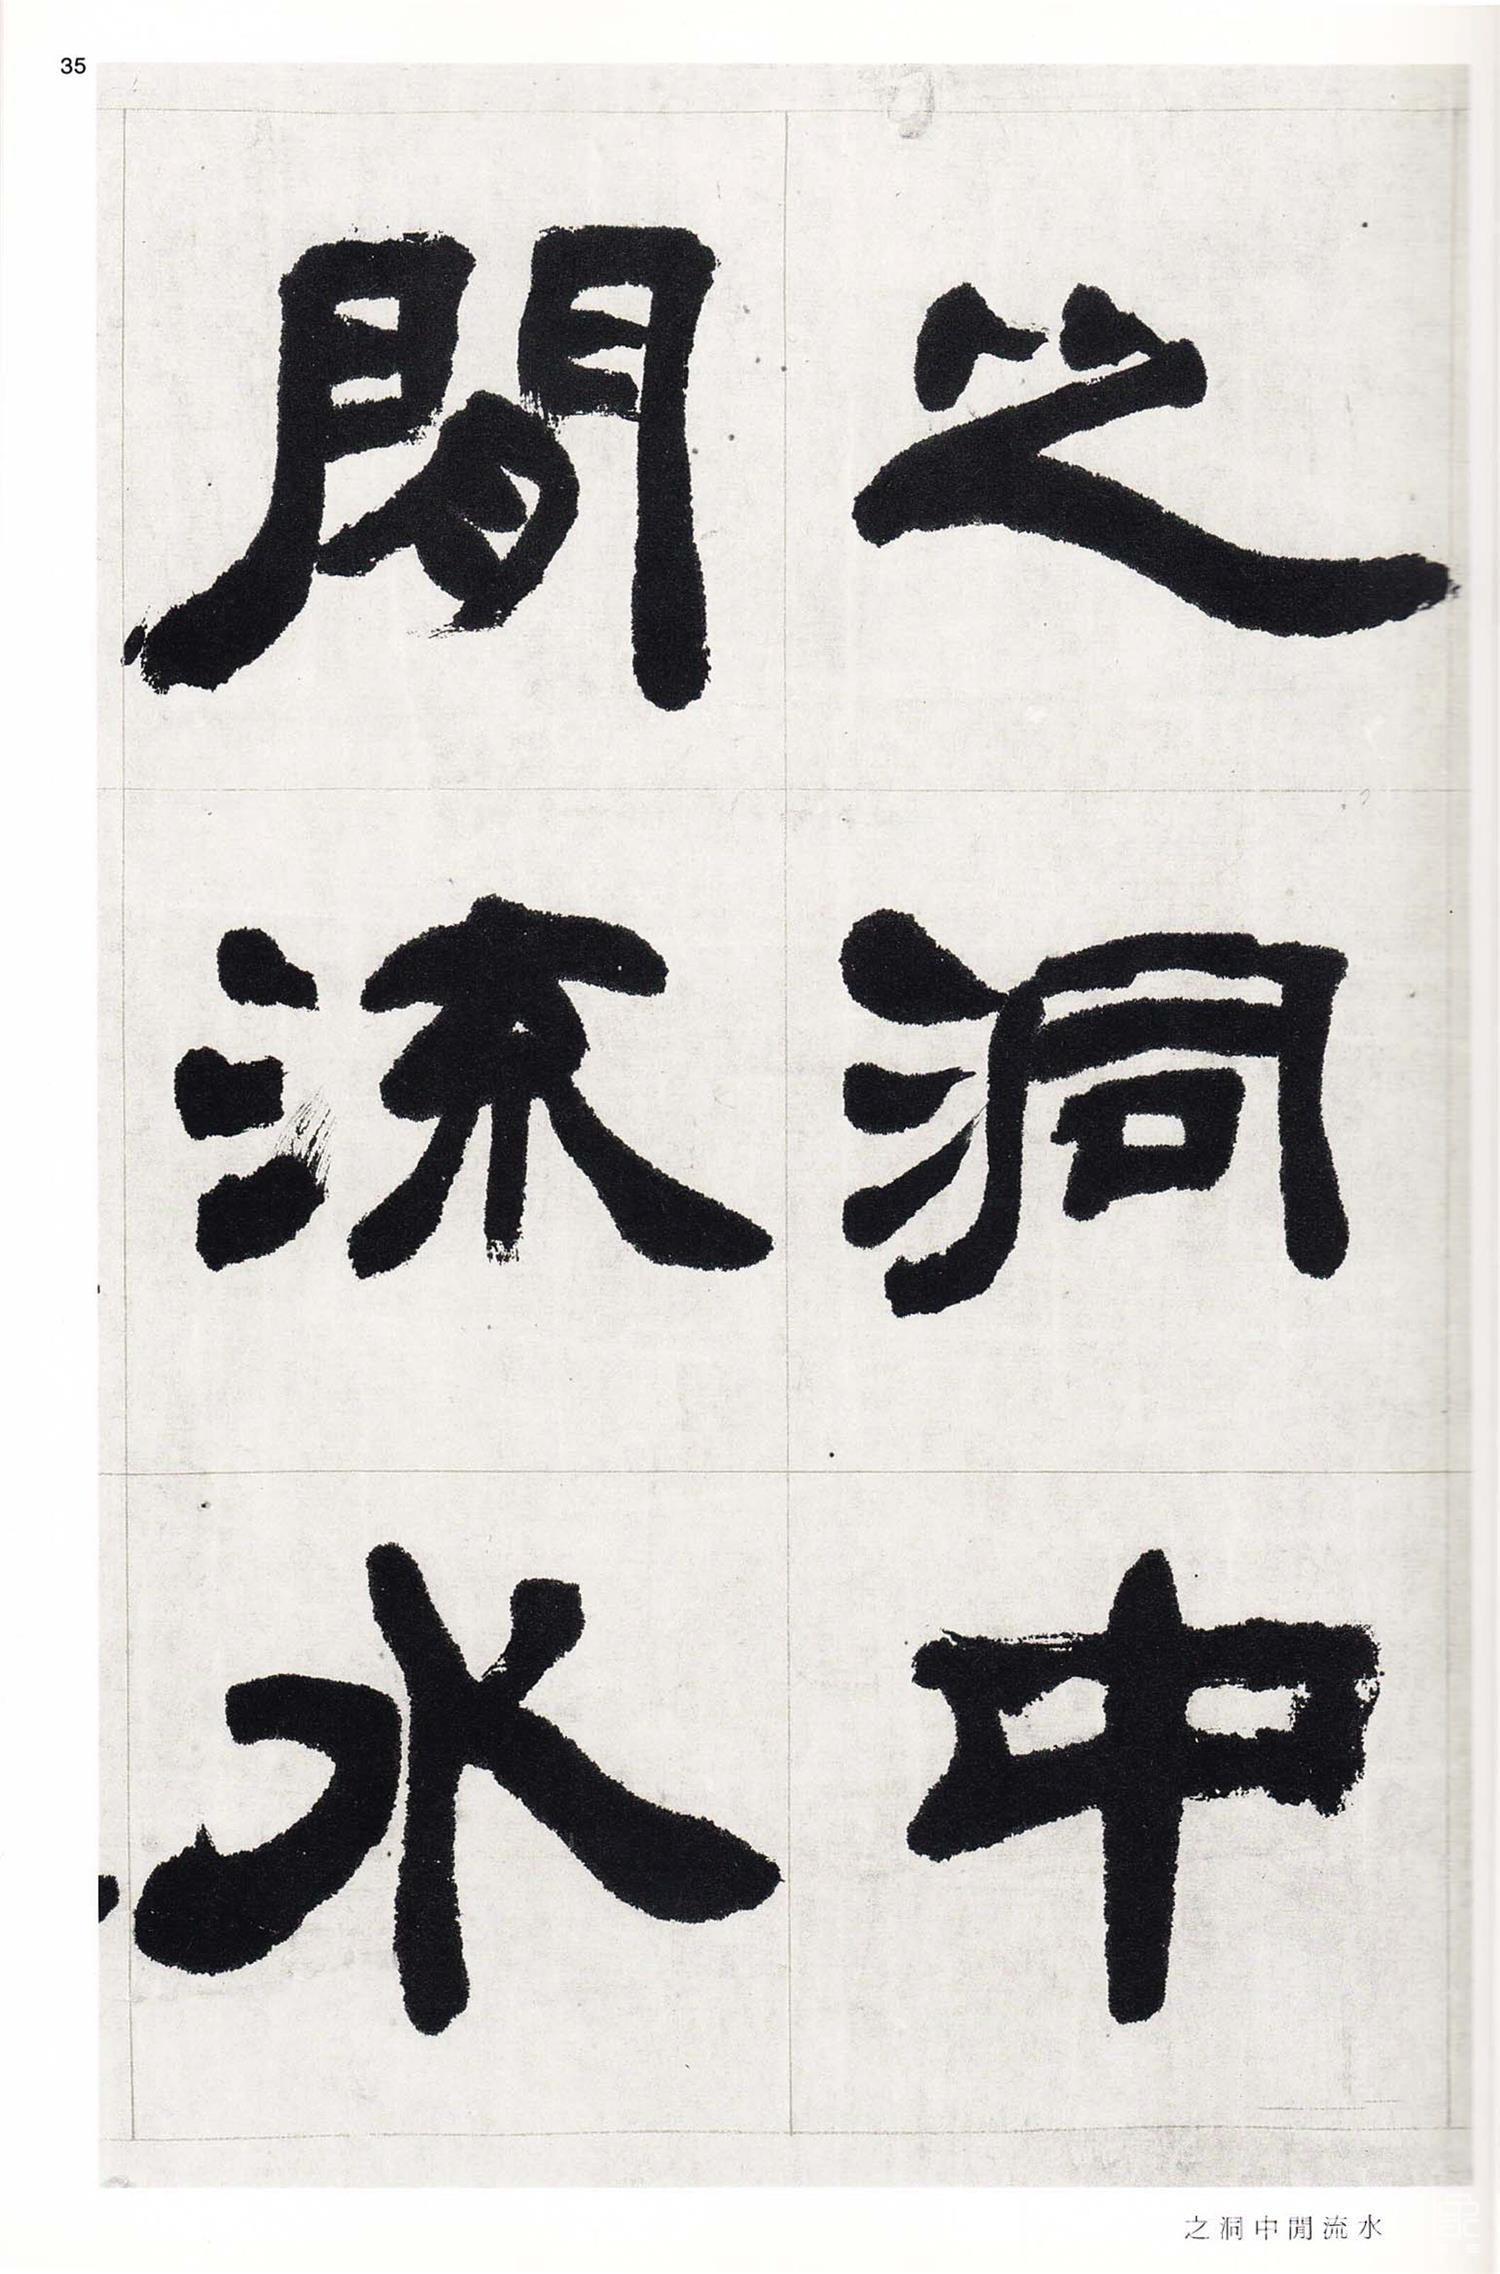 35
之洞中
閒流水
之洞中閒流水